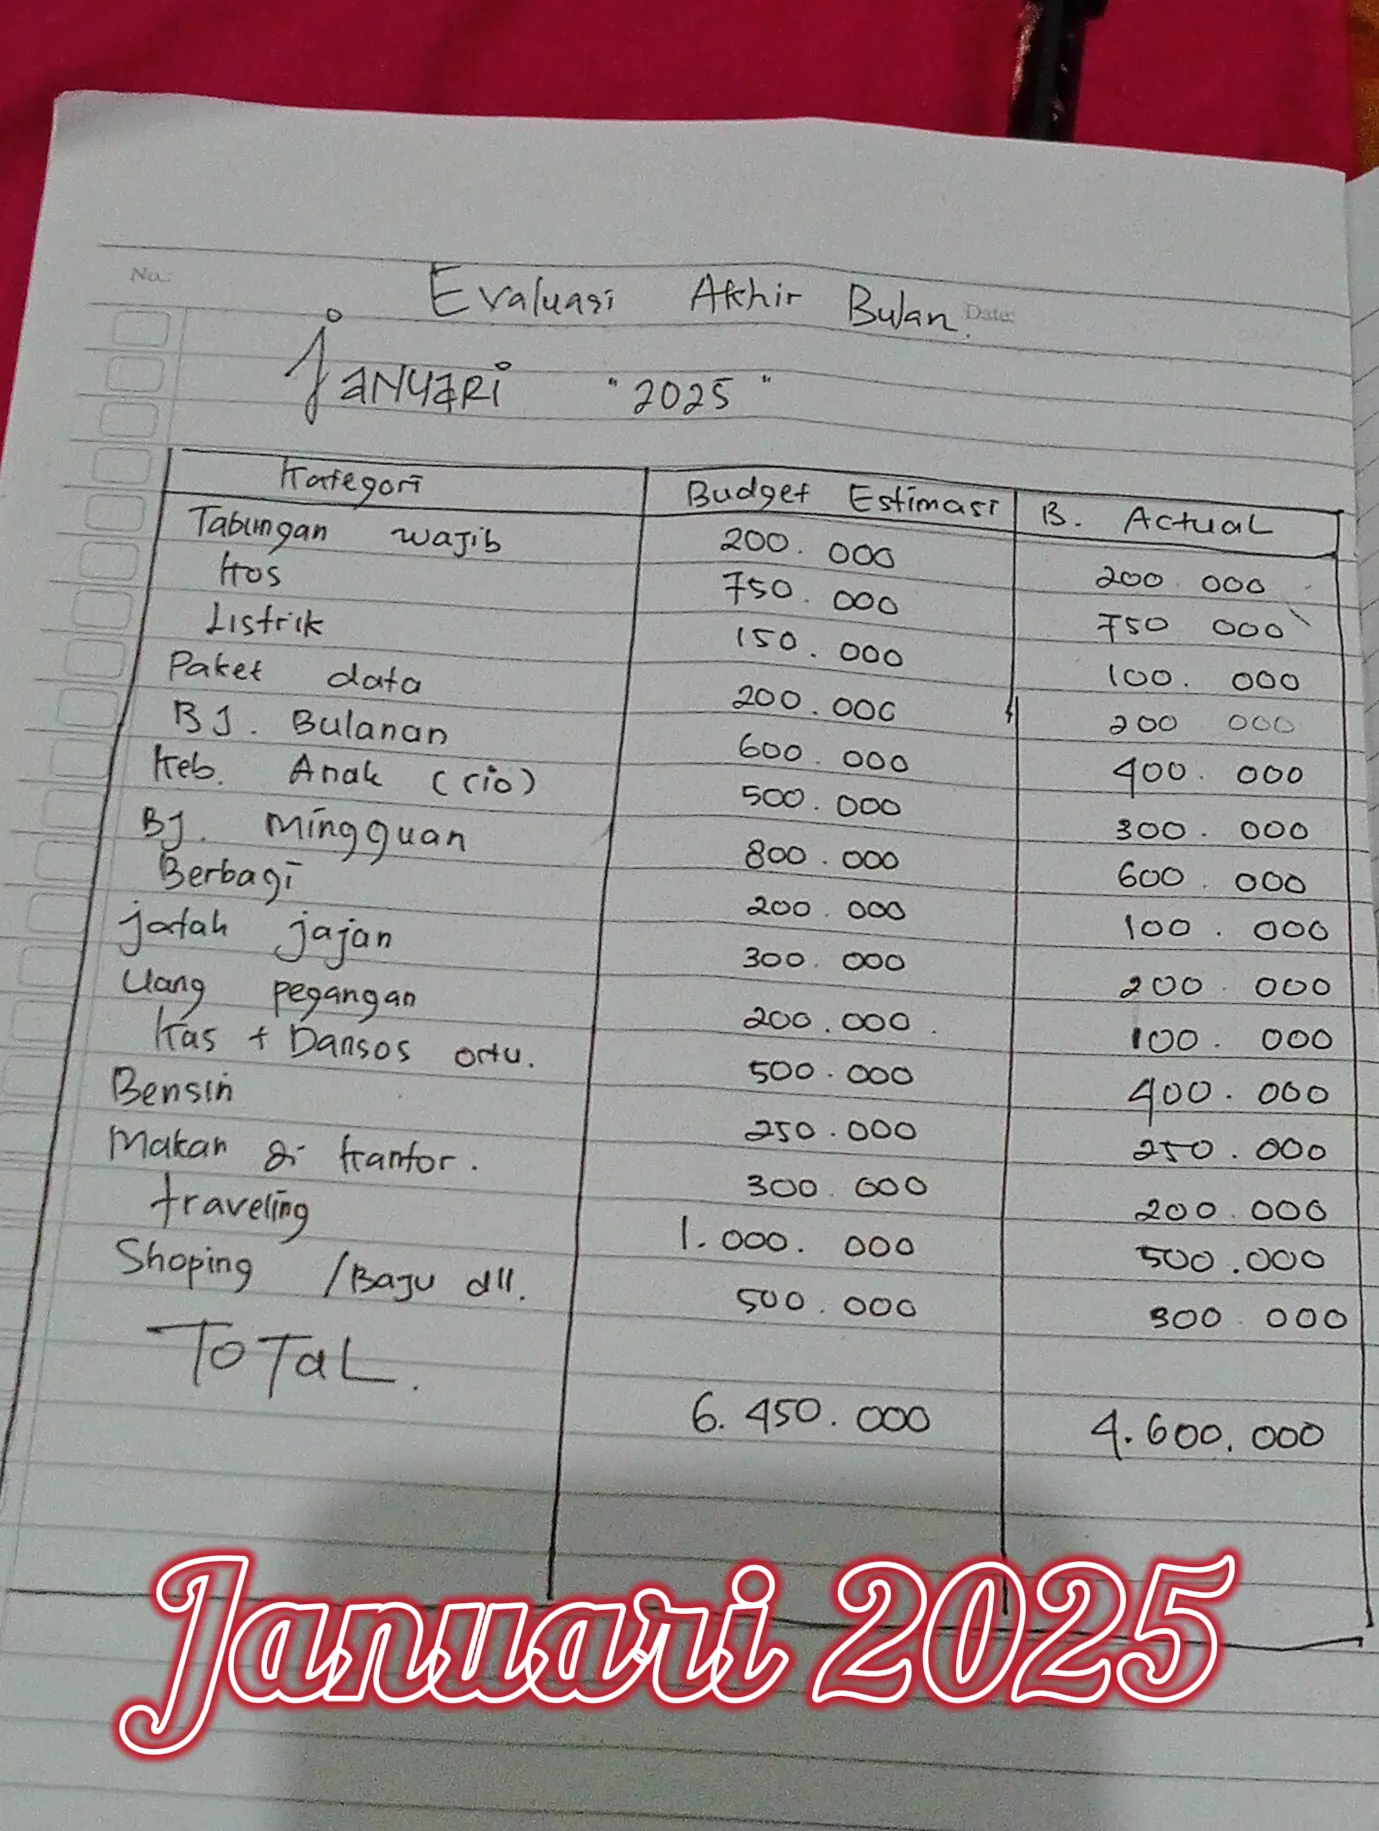 No.:
Evaluasi Akhir Bulan.
Date:
Januari "2025"
Kategori Budget Estimasi B. Actual
Tabungan wajib 200.000 200.000
Kos 750.000 750 000
Listrik 150.000 100.000
Paket data 200.000 200 000
BJ. Bulanan 600.000 400.000
Keb. Anak (rio) 500.000 300.000
BJ. Mingguan 800.000 600.000
Berbagi 200.000 100.000
jatah jajan 300.000 200.000
Uang pegangan 200.000. 100.000
Kas + Dansos ortu. 500.000 400.000
Bensin 250.000 250.000
Makan di kantor. 300.000 200.000
traveling 1.000.000 500.000
Shoping /Baju dll. 500.000 300.000
ToTaL. 6.450.000 4.600.000
Januari 2025